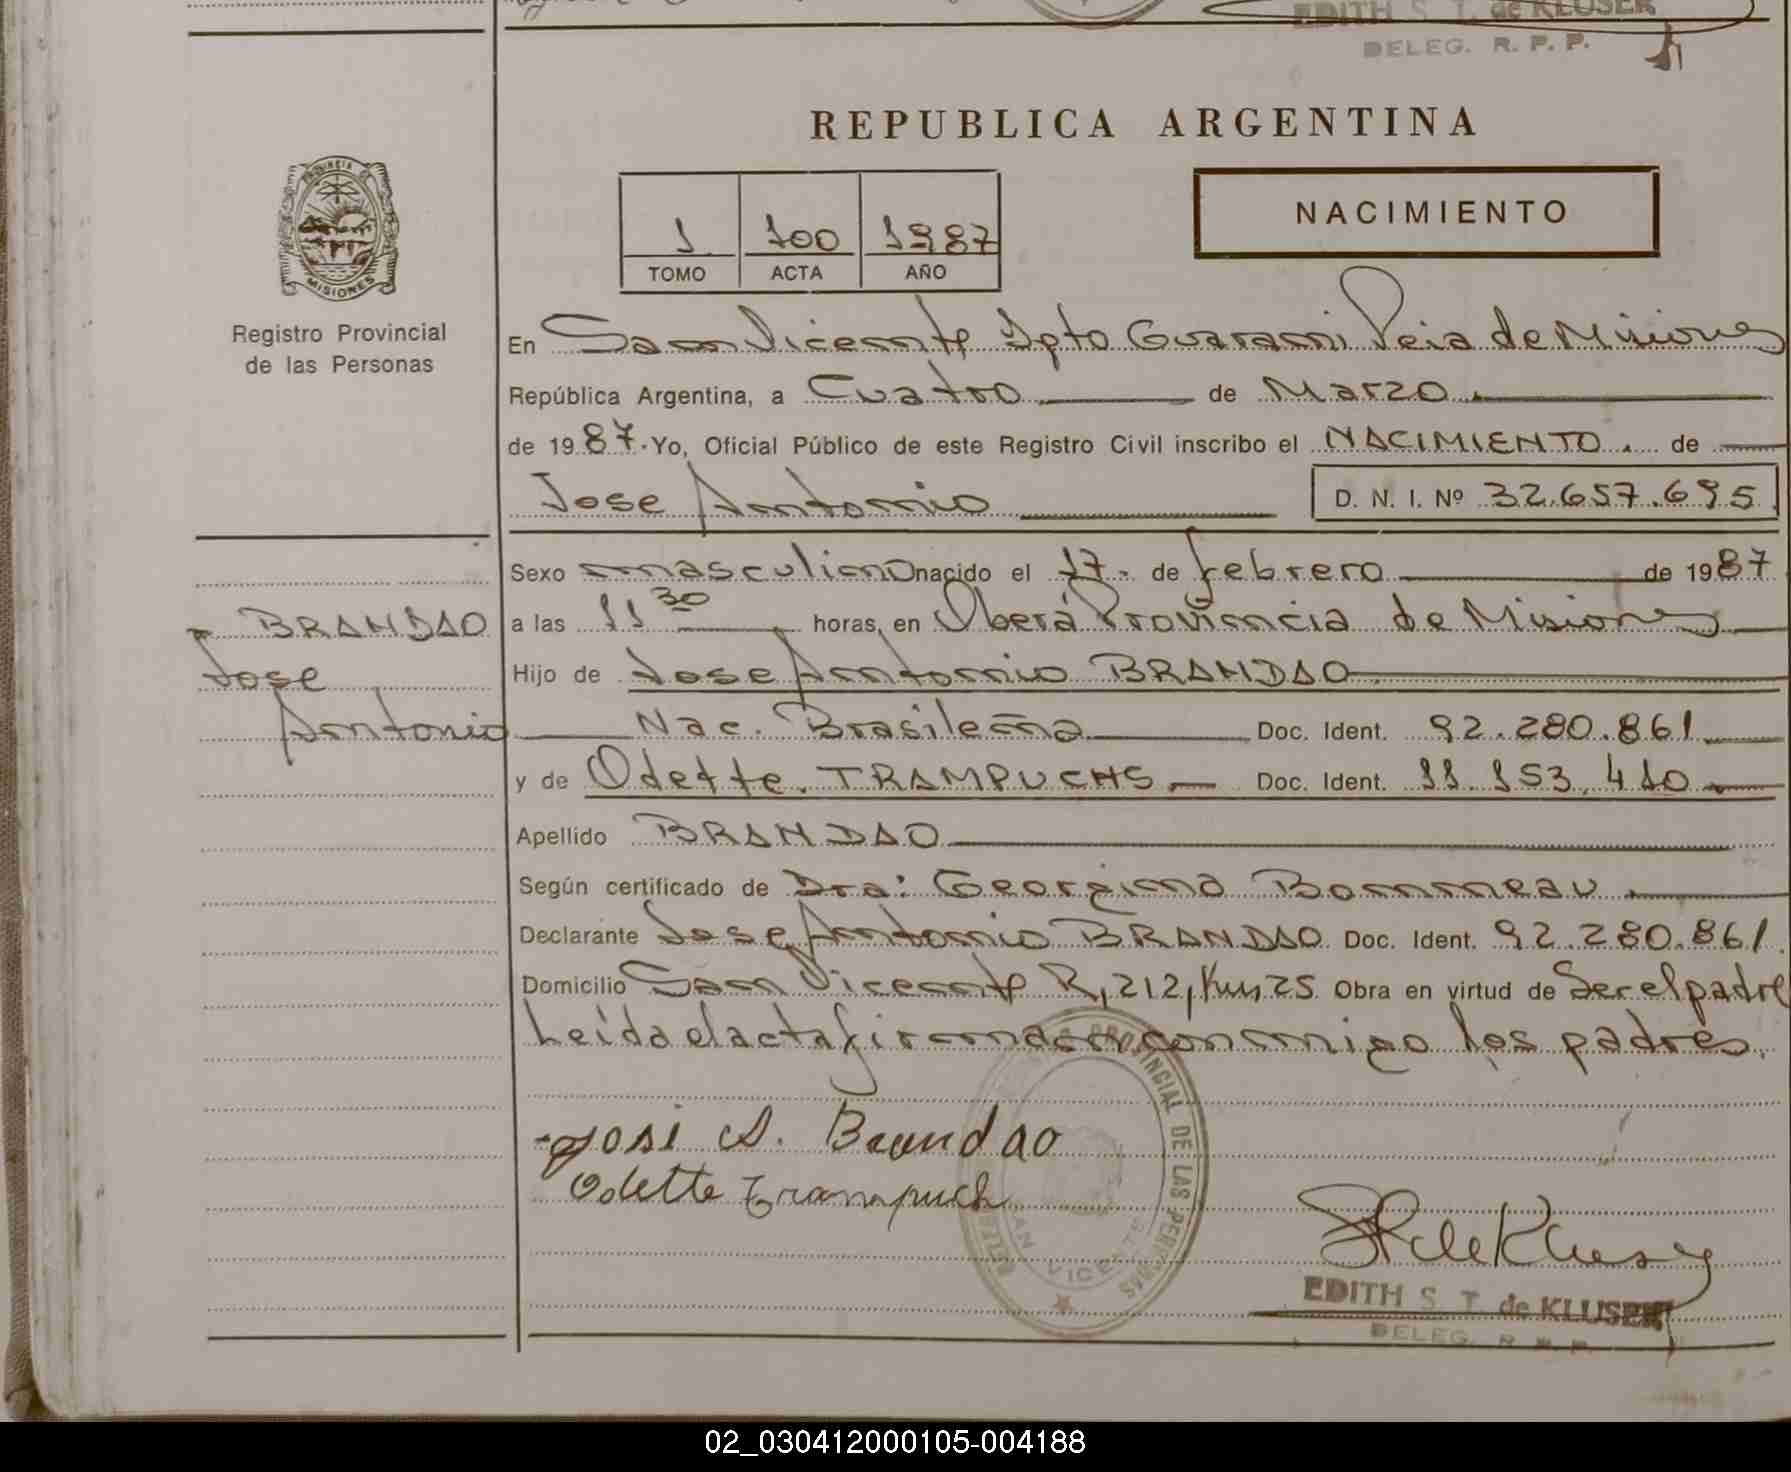 EDITH S. T. de KLUSER
DELEG. R. P. P.
REPUBLICA ARGENTINA
PROVINCIA DE
MISIONES
Registro Provincial
de las Personas
1 100 1987
TOMO ACTA AÑO
NACIMIENTO
En San Vicente Dpto Guarani Pcia de Misiones
República Argentina, a Cuatro de Marzo
de 1987. Yo, Oficial Público de este Registro Civil inscribo el NACIMIENTO. de
Jose Antonio D. N. I. Nº 32.657.695
Sexo masculino nacido el 17. de febrero de 1987
BRANDAO
Jose
Antonio
a las 11 30 horas, en Oberá Provincia de Misiones
Hijo de Jose Antonio BRANDAO
Nac. Brasileña Doc. Ident. 92.280.861
y de Odette. TRAMPUCHS Doc. Ident. 11.153.410
Apellido BRANDAO
Según certificado de Dra: Georgina Bonneau
Declarante Jose Antonio BRANDAO Doc. Ident. 92.280.861
Domicilio San Vicente R,212,Km,25 Obra en virtud de Ser el padre
Leída el acta firman conmigo los padres.
José A. Brandao
Odette Trampuch
PROVINCIAL DE LAS PERSONAS
SAN VICENTE
EDITH S. T. de KLUSER
DELEG. R. P. P.
02_030412000105-004188